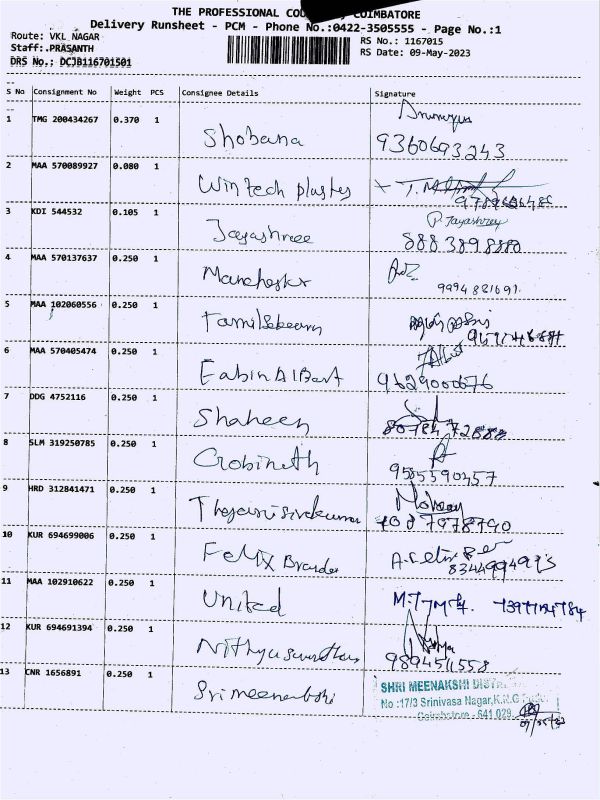 THE PROFESSIONAL COIMBATORE
Delivery Runsheet - PCM - Phone No.:0422-3505555 - Page No.:1
Route: VKL NAGAR
RS No.: 1167015
Staff:.PRASANTH
RS Date: 09-May-2023
DRS No.: DCJB116701501
S No Consignment No Weight PCS Consignee Details Signature
1 TMG 200434267 0.370 1
Shobana 9360693243
2 MAA 570089927 0.080 1
Wintech plastes
3 KDI 544532 0.105 1 P. Jayashree
Jayashree 8883898880
4 MAA 570137637 0.250 1
Manchester 9994881691
5 MAA 102060556 0.250 1
6 MAA 570405474 0.250 1
EabinAlBert 9629000676
7 DDG 4752116 0.250 1
Shaheen 8078472888
8 SLM 319250785 0.250 1
Gobinath 9585590457
9 HRD 312841471 0.250 1
10 KUR 694699006 0.250 1
Felix
11 MAA 102910622 0.250 1
United
12 KUR 694691394 0.250 1
9894511558
13 CNR 1656891 0.250 1
Srimeenakshi
SHRI MEENAKSHI
No :17/3 Srinivasa Nagar,K.N.G
Coimbatore - 641 029